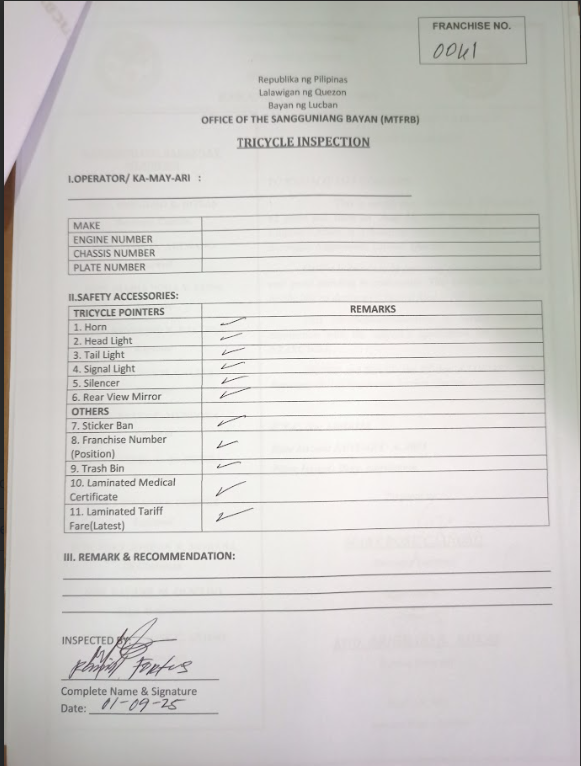 FRANCHISE NO.
0041
Republika ng Pilipinas
Lalawigan ng Quezon
Bayan ng Lucban
OFFICE OF THE SANGGUNIANG BAYAN (MTFRB)
TRICYCLE INSPECTION
I.OPERATOR/ KA-MAY-ARI :
MAKE
ENGINE NUMBER
CHASSIS NUMBER
PLATE NUMBER
II.SAFETY ACCESSORIES:
TRICYCLE POINTERS REMARKS
1. Horn ✓
2. Head Light ✓
3. Tail Light ✓
4. Signal Light ✓
5. Silencer ✓
6. Rear View Mirror ✓
OTHERS
7. Sticker Ban ✓
8. Franchise Number ✓
(Position)
9. Trash Bin ✓
10. Laminated Medical ✓
Certificate
11. Laminated Tariff ✓
Fare(Latest)
III. REMARK & RECOMMENDATION:
INSPECTED BY:
Fortus
Complete Name & Signature
Date: 01-09-25